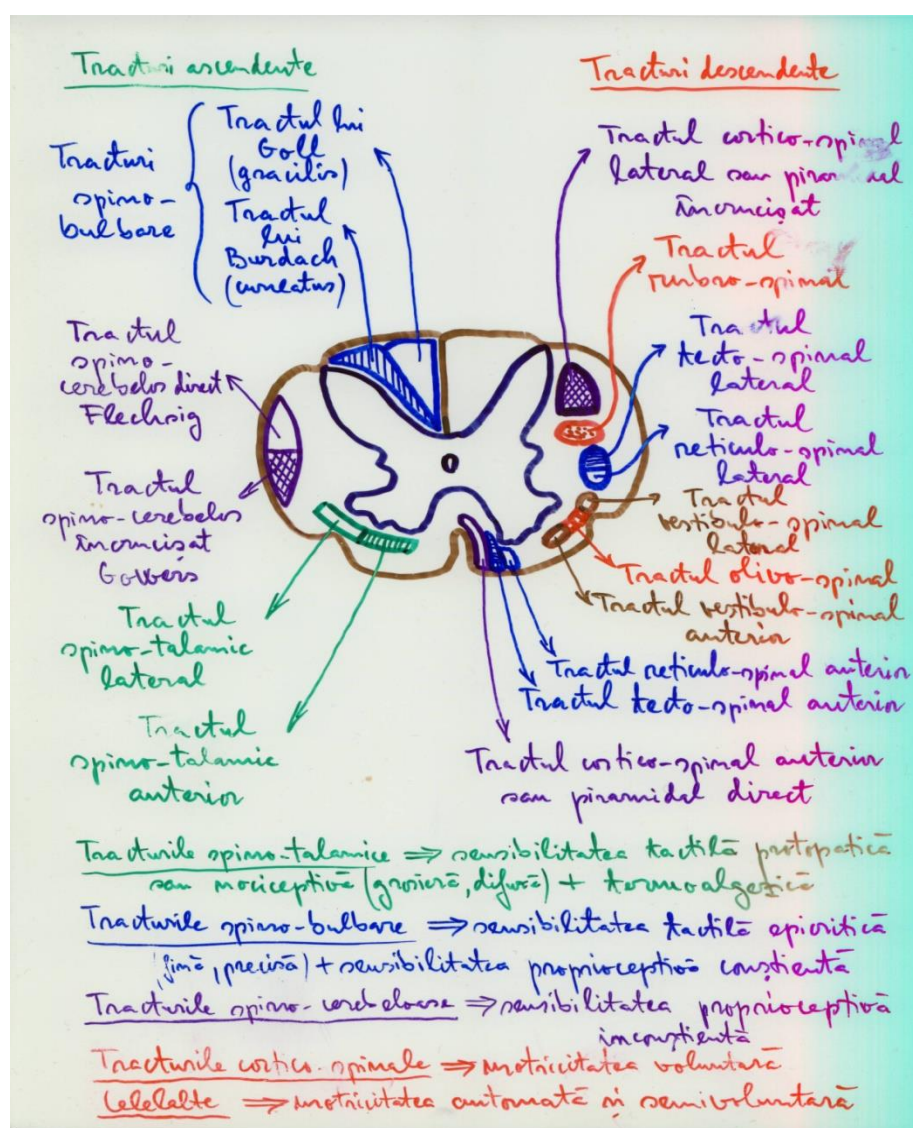 Tracturi ascendente
Tracturi descendente
Tracturi
spino-
bulbare
Tractul lui
Goll
(gracilis)
Tractul
lui
Burdach
(cuneatus)
Tractul
spino-
cerebelos direct
Flechsig
Tractul
spino-cerebelos
încrucișat
Gowers
Tractul
spino-talamic
lateral
Tractul
spino-talamic
anterior
Tractul cortico-spinal
lateral sau piramidal
încrucișat
Tractul
rubro-spinal
Tractul
tecto-spinal
lateral
Tractul
reticulo-spinal
lateral
Tractul
vestibulo-spinal
lateral
Tractul olivo-spinal
Tractul vestibulo-spinal
anterior
Tractul reticulo-spinal anterior
Tractul tecto-spinal anterior
Tractul cortico-spinal anterior
sau piramidal direct
Tracturile spino-talamice ⇒ sensibilitatea tactilă protopatică
sau nociceptivă (grosieră, difuză) + termoalgezică
Tracturile spino-bulbare ⇒ sensibilitatea tactilă epicritică
(fină, precisă) + sensibilitatea proprioceptivă conștientă
Tracturile spino-cerebeloase ⇒ sensibilitatea proprioceptivă
inconștientă
Tracturile cortico-spinale ⇒ motricitatea voluntară
Celelalte ⇒ motricitatea automată și semivoluntară